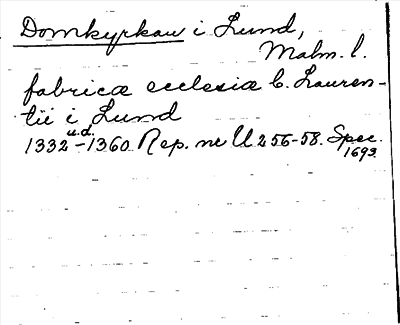 Domkyrkan i Lund,
Malm. l.
fabrica ecclesiæ b. Lauren-
tii i Lund
u.d.
1332-1360 Rep. nr U 256-58. Spec.
1693